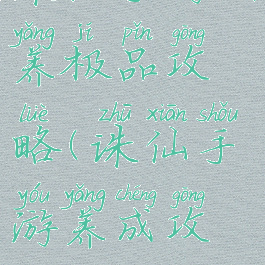 yǎng jí pǐn gōng
养极品攻
lüè zhū xiān shǒu
略(诛仙手
yóu yǎng chéng gōng
游养成攻